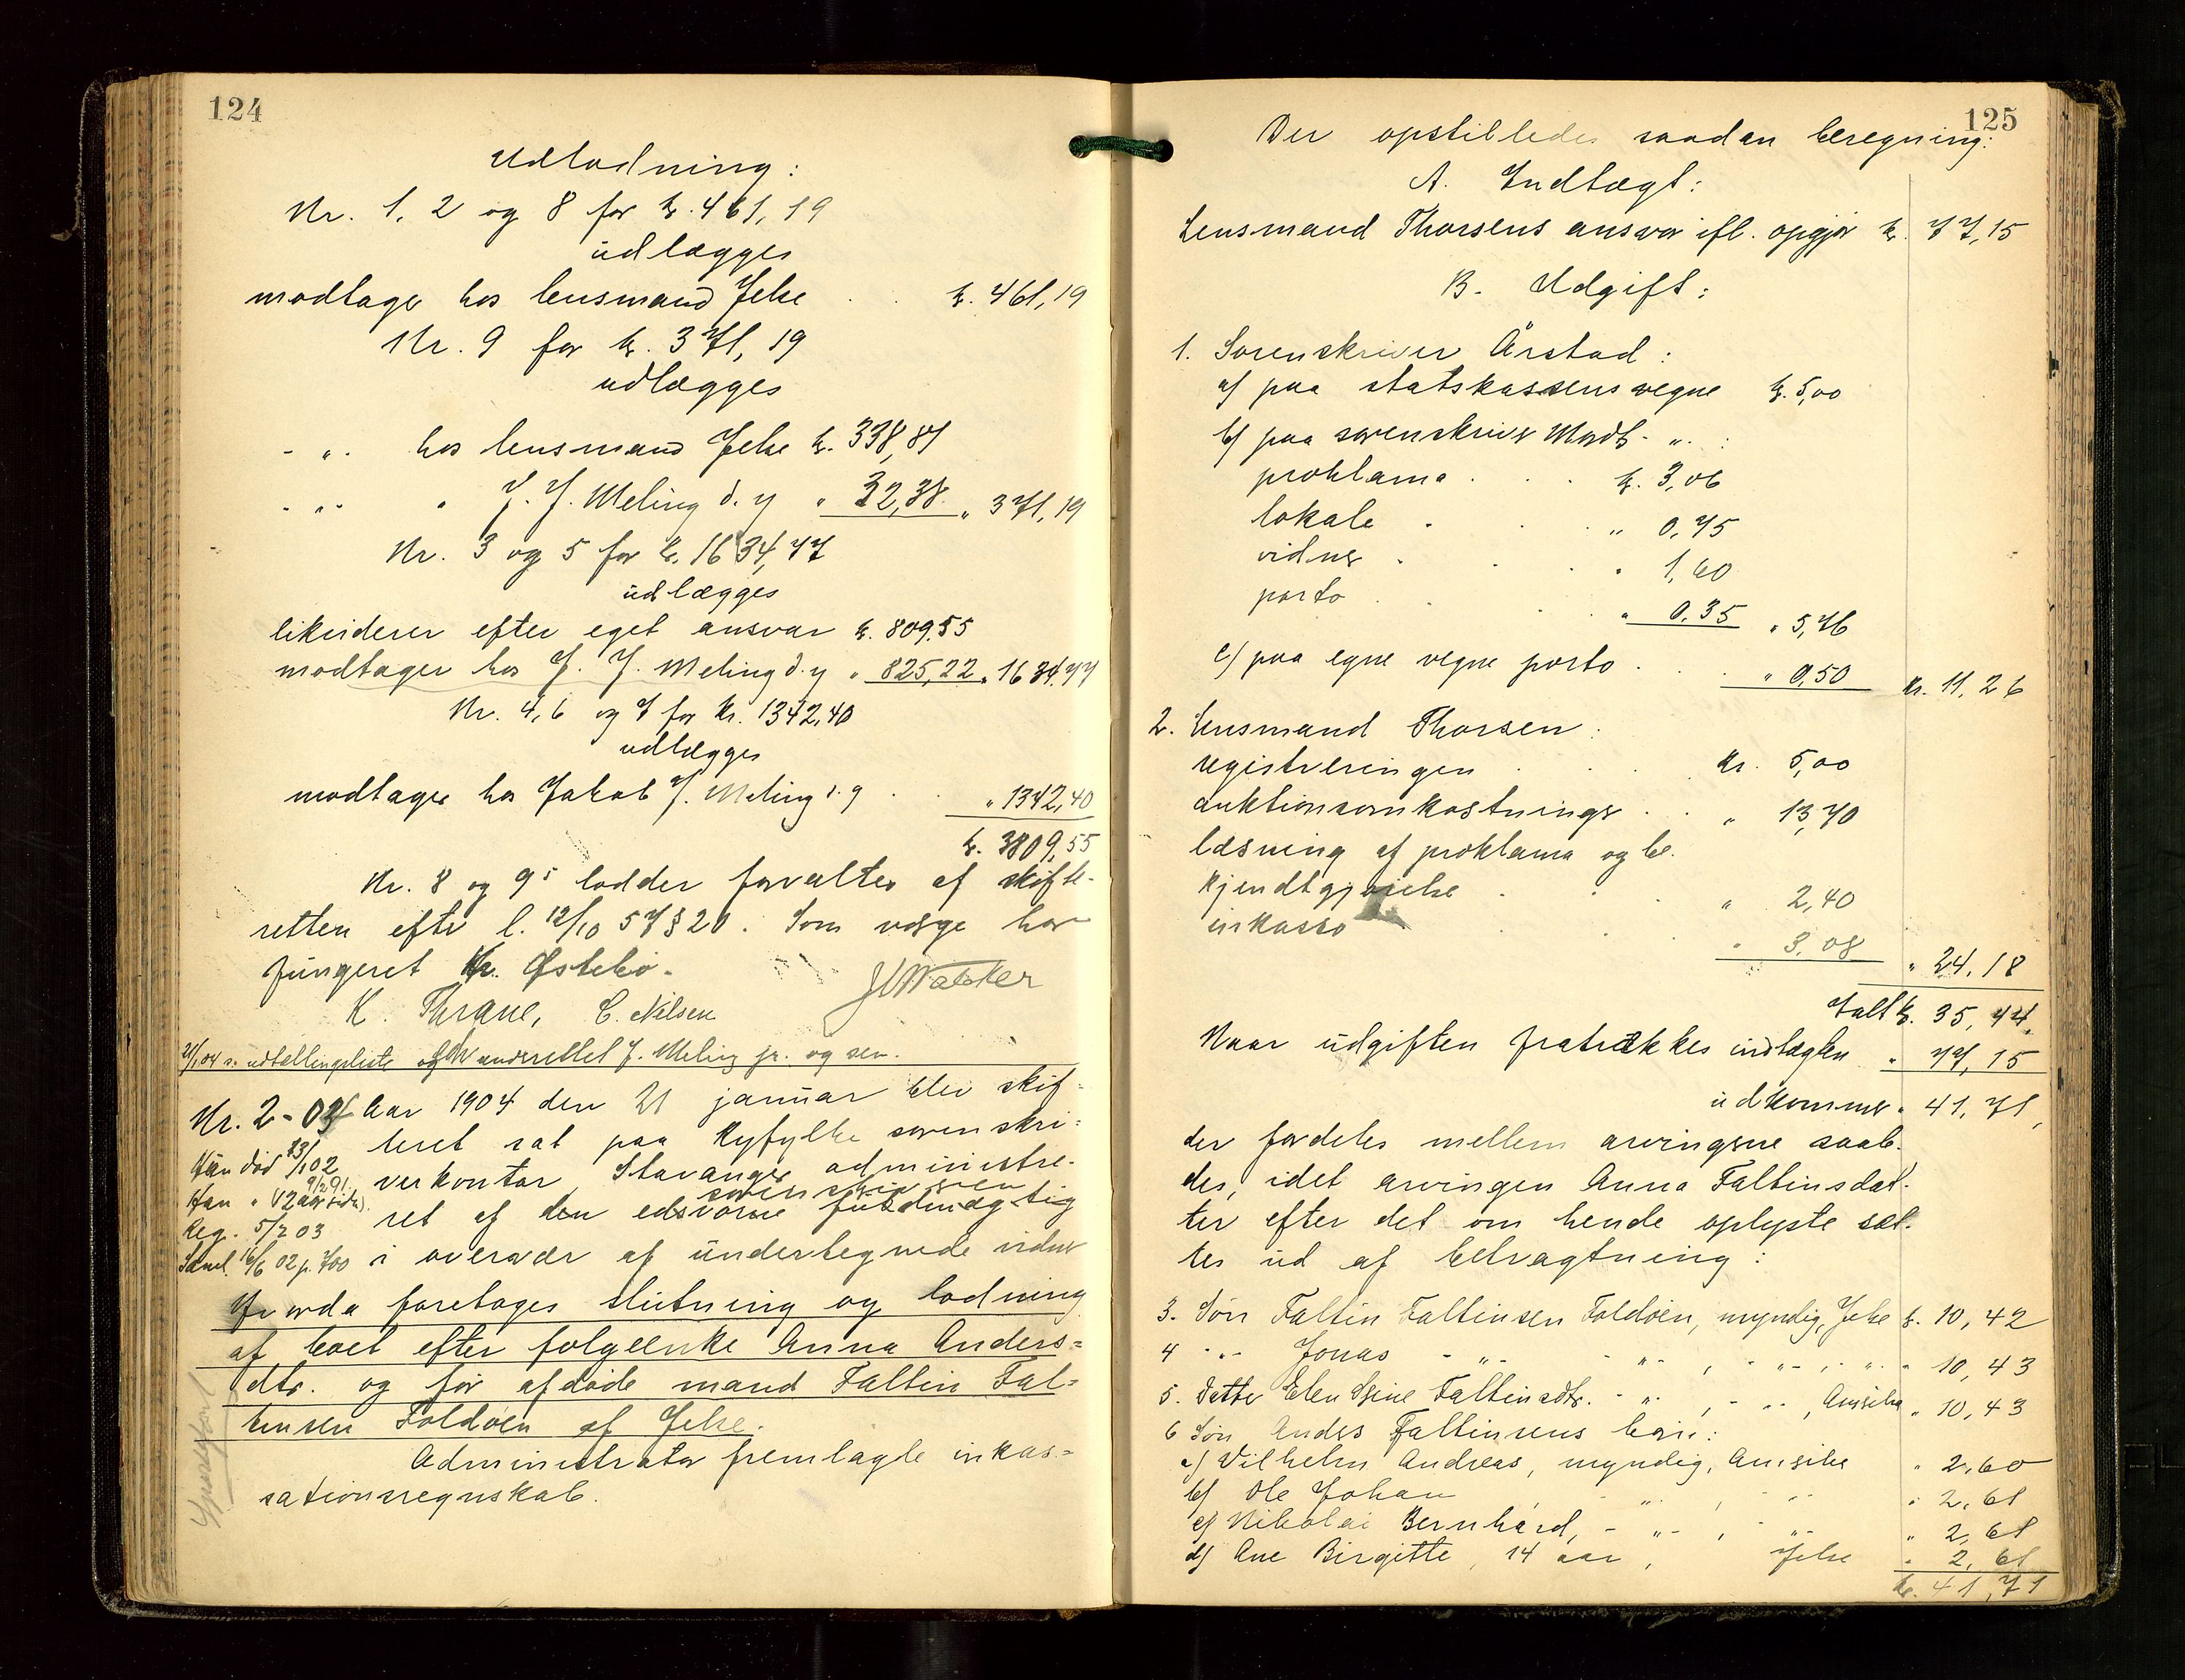 124
Udlodning:
Nr. 1, 2 og 8 for kr. 461,19
udlægges
modtager hos lensmand Jelse . . kr. 461,19
Nr. 9 for kr. 371,19
udlægges
- " - hos lensmand Jelse kr. 338,81
- " - " J. J. Meling d. y " 32,38 " 371,19
Nr. 3 og 5 for kr. 1634,77
udlægges
likviderer efter eget ansvar kr. 809,55
modtager hos J. J. Meling d. y " 825,22 " 1634,77
Nr. 4, 6 og 7 for kr. 1342,40
udlægges
modtager hos Jakob J. Meling d. y . . " 1342,40
kr. 3809,55
Nr. 8 og 9s lodder forvaltes af skifte-
retten efter l. 12/10 57 § 20. Som værge har
fungeret Kr. Østebø.
K. Thrane, C. Nilsen
21/1 04 s. udtællingsliste og underrettet J. Meling jr. og sen.
Nr. 2-03 Aar 1904 den 21 januar blev skif-
teret sat paa Ryfylke sorenskri-
verkontor, Stavanger administre-
sorenskriveren
ret af den edsvorne fuldmægtig
i overvær af undertegnede vidner
Hun død 13/1 02
Han "
Reg. 5/2 03
Saml. 16/6 02 p. 700
Hvorda foretoges slutning og lodning
af boet efter følgeenke Anna Anders-
dtr. og før afdøde mand Faltin Fal-
tinsen Foldøen af Jelse.
Administrator fremlagte inkas-
sationsregnskab.
125
Der opstilledes saadan beregning:
A. Indtægt:
Lensmand Thorsens ansvar ifl. opgjør kr. 77,15
B. Udgift:
1. Sorenskriver Årstad:
a) paa statskassens vegne kr. 5,00
b) paa sorenskriver Mordts - " - :
proklama . . . kr. 3,06
lokale . . . " 0,75
vidner . . . " 1,60
porto . . . " 0,35 " 5,76
c) paa egne vegne porto . . . " 0,50 kr. 11,26
2. Lensmand Thorsen:
registreringen . . . kr. 5,00
auktionsomkostninger . . " 13,70
læsning af proklama og be-
kjendtgjørelse . . . " 2,40
inkasso . . . " 3,08 " 24,18
Ialt kr. 35,44,
Naar udgiften fratrækkes indtægten " 77,15
udkommer " 41,71,
der fordeles mellem arvingerne saale-
des, idet arvingen Anna Faltinsdat-
ter efter det om hende oplyste sæt-
tes ud af betragtning:
3. Søn Faltin Faltinsen Foldøen, myndig, Jelse kr. 10,42
4 - " - Jonas - " - - " - , - " - , - " - " 10,43
5. Datter Elen Serine Faltinsdtr. - " - , - " - , " 10,43
6 Søn Anders Faltinsens børn:
a) Vilhelm Andreas, myndig, " 2,60
b) Ole Johan - " - , - " - " 2,61
c) Nikolai Bernhard, - " - , - " - " 2,61
d) Ane Birgitte, 14 aar, Jelse " 2,61
kr. 41,71